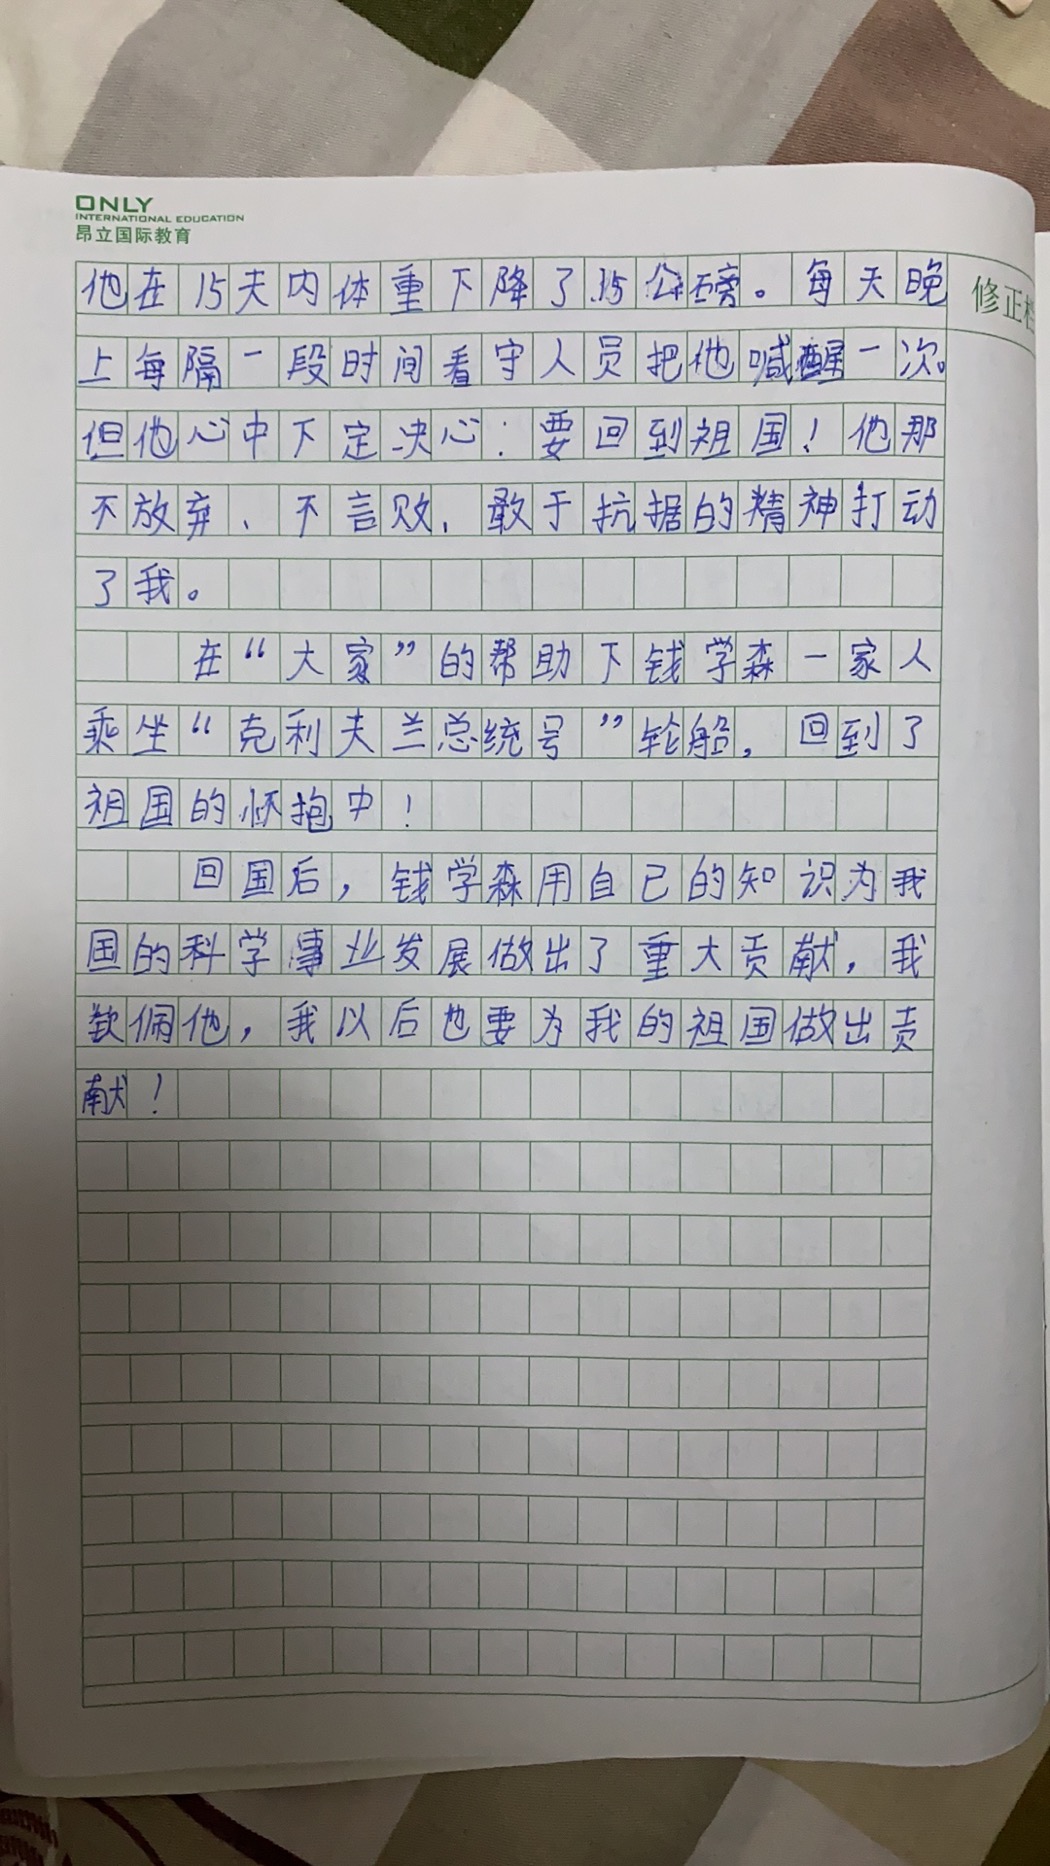 ONLY
INTERNATIONAL EDUCATION
昂立国际教育
修正
他在15天内体重下降了15公磅。每天晚
上每隔一段时间看守人员把他喊醒一次。
但他心中下定决心：要回到祖国！他那
不放弃、不言败，敢于抗据的精神打动
了我。
在“大家”的帮助下钱学森一家人
乘坐“克利夫兰总统号”轮船，回到了
祖国的怀抱中！
回国后，钱学森用自己的知识为我
国的科学事业发展做出了重大贡献，我
钦佩他，我以后也要为我的祖国做出贡
献！